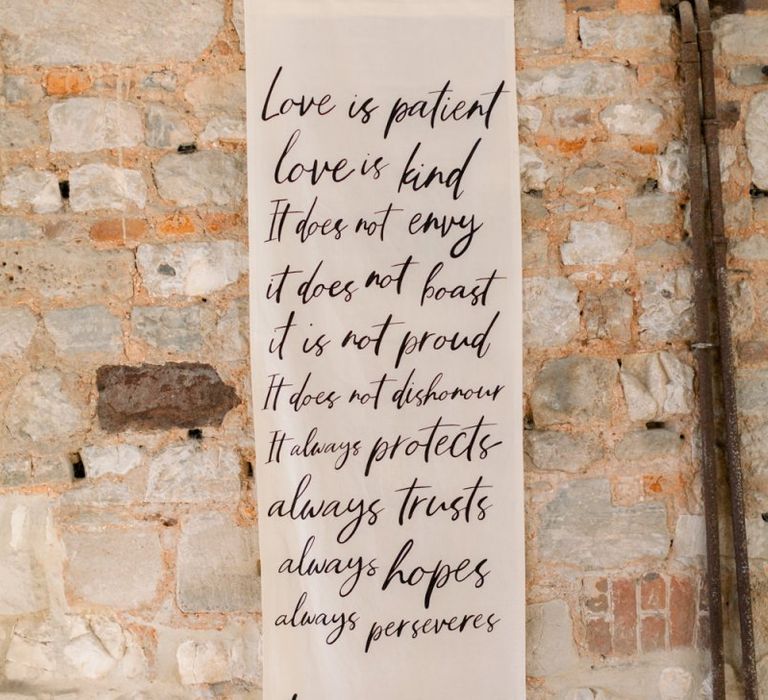 Love is patient
love is kind
It does not envy
it does not boast
it is not proud
It does not dishonour
It always protects
always trusts
always hopes
always perseveres